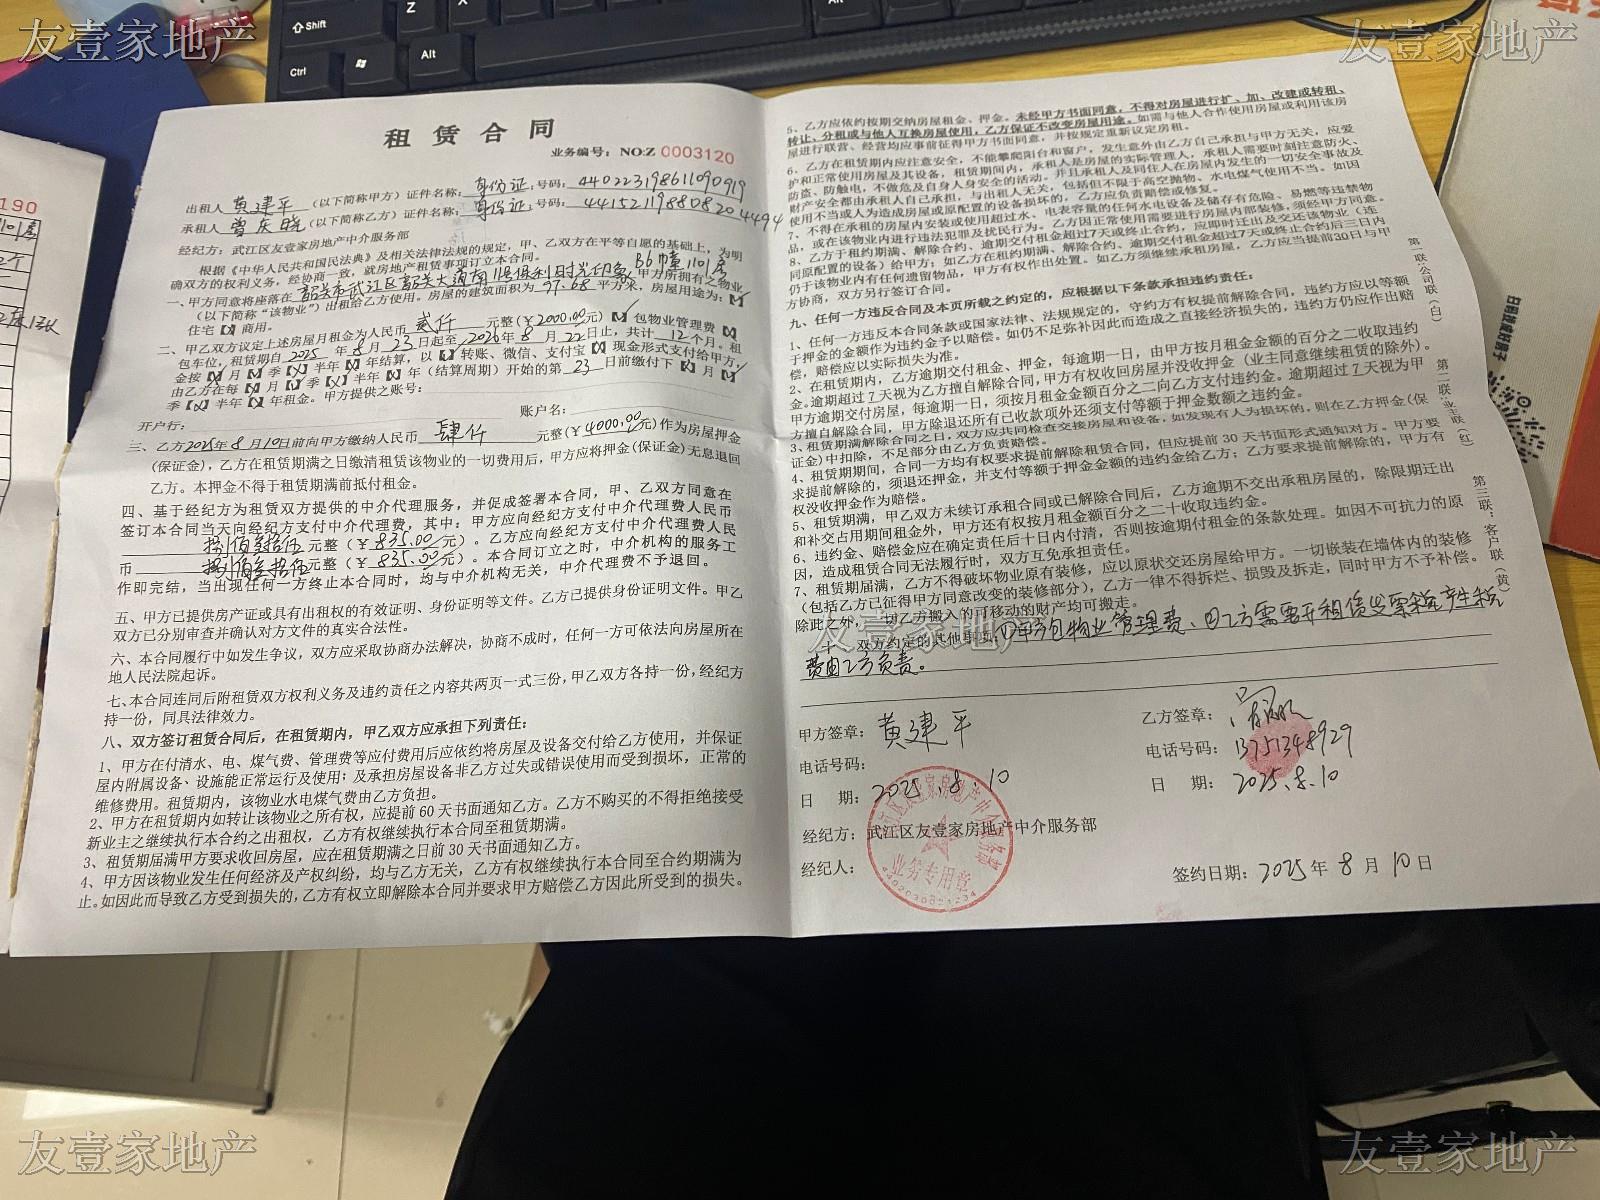 友壹家地产
友壹家地产
Shift
Z
X
Alt
Ctrl
Alt
租赁合同
业务编号：NO:Z 0003120
出租人 黄建平 （以下简称甲方）证件名称：身份证；号码：440223198611090919
承租人 曾庆晓（以下简称乙方）证件名称：身份证；号码：441521198808204494
经纪方：武江区友壹家房地产中介服务部
根据《中华人民共和国民法典》及相关法律法规的规定，甲、乙双方在平等自愿的基础上，为明
确双方的权利义务，经协商一致，就房地产租赁事项订立本合同。
B6幢1101房
一、甲方同意将座落在 韶关市武江区韶关大道南11号保利时光印象 甲方所拥有之物业
（以下简称“该物业”）出租给乙方使用。房屋的建筑面积为 97.68 平方米，房屋用途为：【】
住宅【】商用。
二、甲乙双方议定上述房屋月租金为人民币 贰仟 元整（￥2000.00元）【】包物业管理费【】
包车位，租赁期自 2025 年 8 月 23 日起至 2026 年 8 月 22 日止，共计 12 个月。租
金按【】月【】季【】半年【】年结算，以【】转账、微信、支付宝【】现金形式支付给甲方，
由乙方在每【】月【】季【】半年【】年（结算周期）开始的第 23 日前缴付下【】月【】
季【】半年【】年租金。甲方提供之账号：
开户行： 账户名：
三、乙方2025年8月10日前向甲方缴纳人民币 肆仟 元整（￥4000.00元)作为房屋押金
(保证金)，乙方在租赁期满之日缴清租赁该物业的一切费用后，甲方应将押金(保证金)无息退回
乙方。本押金不得于租赁期满前抵付租金。
四、基于经纪方为租赁双方提供的中介代理服务，并促成签署本合同，甲、乙双方同意在
签订本合同当天向经纪方支付中介代理费，其中：甲方应向经纪方支付中介代理费人民币
捌佰叁拾伍 元整（￥835.00元）。乙方应向经纪方支付中介代理费人民
币 捌佰叁拾伍 元整（￥835.00元）。本合同订立之时，中介机构的服务工
作即完结，当出现任何一方终止本合同时，均与中介机构无关，中介代理费不予退回。
五、甲方已提供房产证或具有出租权的有效证明、身份证明等文件。乙方已提供身份证明文件。甲乙
双方已分别审查并确认对方文件的真实合法性。
六、本合同履行中如发生争议，双方应采取协商办法解决，协商不成时，任何一方可依法向房屋所在
地人民法院起诉。
七、本合同连同后附租赁双方权利义务及违约责任之内容共两页一式三份，甲乙双方各持一份，经纪方
持一份，同具法律效力。
八、双方签订租赁合同后，在租赁期内，甲乙双方应承担下列责任：
1、甲方在付清水、电、煤气费、管理费等应付费用后应依约将房屋及设备交付给乙方使用，并保证
屋内附属设备、设施能正常运行及使用；及承担房屋设备非乙方过失或错误使用而受到损坏，正常的
维修费用。租赁期内，该物业水电煤气费由乙方负担。
2、甲方在租赁期内如转让该物业之所有权，应提前60天书面通知乙方。乙方不购买的不得拒绝接受
新业主之继续执行本合约之出租权，乙方有权继续执行本合同至租赁期满。
3、租赁期届满甲方要求收回房屋，应在租赁期满之日前30天书面通知乙方。
4、甲方因该物业发生任何经济及产权纠纷，均与乙方无关，乙方有权继续执行本合同至合约期满为
止。如因此而导致乙方受到损失的，乙方有权立即解除本合同并要求甲方赔偿乙方因此所受到的损失。
5、乙方应依约按期交纳房屋租金、押金。未经甲方书面同意，不得对房屋进行扩、加、改建或转租、
转让、分租或与他人互换房屋使用，乙方保证不改变房屋用途。如需与他人合作使用房屋或利用该房
屋进行联营、经营均应事前征得甲方书面同意，并按规定重新议定房租。
6、乙方在租赁期内应注意安全，不能攀爬阳台和窗户，发生意外由乙方自己承担与甲方无关，应爱
护和正常使用房屋及其设备，租赁期间内，承租人是房屋的实际管理人，承租人需要时刻注意防火、
防盗、防触电，不做危及自身人身安全的活动。并且承租人及同住人在房屋内发生的一切安全事故及
财产安全都由承租人自己承担，与出租人无关，包括但不限于高空抛物、水电煤气使用不当。如因
使用不当或人为造成房屋或原配置的设备损坏的，乙方应负责赔偿或修复。
7、不得在承租的房屋内安装或使用超过水、电表容量的任何水电设备及储存有危险、易燃等违禁物
品，或在该物业内进行违法犯罪及扰民行为。乙方因正常使用需要进行房屋内部装修，须经甲方同意。
8、乙方于租约期满、解除合约、逾期交付租金超过7天或终止合约，应即时迁出及交还该物业（连
同原配置的设备）给甲方；如乙方在租约期满、解除合约、逾期交付租金超过7天或终止合约后三日内
仍于该物业内有任何遗留物品，甲方有权作出处置。如乙方须继续承租房屋，乙方应当提前30日与甲
方协商，双方另行签订合同。
九、任何一方违反合同及本页所载之约定的，应根据以下条款承担违约责任：
1、任何一方违反本合同条款或国家法律、法规规定的，守约方有权提前解除合同，违约方应以等额
于押金的金额作为违约金予以赔偿。如仍不足弥补因此而造成之直接经济损失的，违约方仍应作出赔
偿，赔偿应以实际损失为准。
2、在租赁期内，乙方逾期交付租金、押金，每逾期一日，由甲方按月租金金额的百分之二收取违约
金。逾期超过7天视为乙方擅自解除合同，甲方有权收回房屋并没收押金（业主同意继续租赁的除外）。
甲方逾期交付房屋，每逾期一日，须按月租金金额百分之二向乙方支付违约金。逾期超过7天视为甲
方擅自解除合同，甲方除退还所有已收款项外还须支付等额于押金数额之违约金。
3、租赁期满解除合同之日，双方应共同检查交接房屋和设备，如发现有人为损坏的，则在乙方押金(保
证金)中扣除，不足部分由乙方负责赔偿。
4、租赁期期间，合同一方均有权要求提前解除租赁合同，但应提前30天书面形式通知对方。甲方要
求提前解除的，须退还押金，并支付等额于押金金额的违约金给乙方；乙方要求提前解除的，甲方有
权没收押金作为赔偿。
5、租赁期满，甲乙双方未续订承租合同或已解除合同后，乙方逾期不交出承租房屋的，除限期迁出
和补交占用期间租金外，甲方还有权按月租金额百分之二十收取违约金。
6、违约金、赔偿金应在确定责任后十日内付清，否则按逾期付租金的条款处理。如因不可抗力的原
因，造成租赁合同无法履行时，双方互免承担责任。
7、租赁期届满，乙方不得破坏物业原有装修，应以原状交还房屋给甲方。一切嵌装在墙体内的装修
（包括乙方已征得甲方同意改变的装修部分），乙方一律不得拆烂、损毁及拆走，同时甲方不予补偿。
除此之外，一切乙方搬入的可移动的财产均可搬走。
十、双方约定的其他事项：①甲方包物业管理费、②乙方需要开租赁发票税产生税
费由乙方负责。
友壹家地产
甲方签章：黄建平
电话号码：
日 期：2025.8.10
经纪方：武江区友壹家房地产中介服务部
经纪人：
乙方签章：
电话号码：13751348929
日 期：2025.8.10
签约日期：2025年8月10日
武江区友壹家房地产中介服务部
业务专用章
第一联：公司联（白）
第二联：业主联（红）
第三联：客户联（黄）
190
友壹家地产
友壹家地产